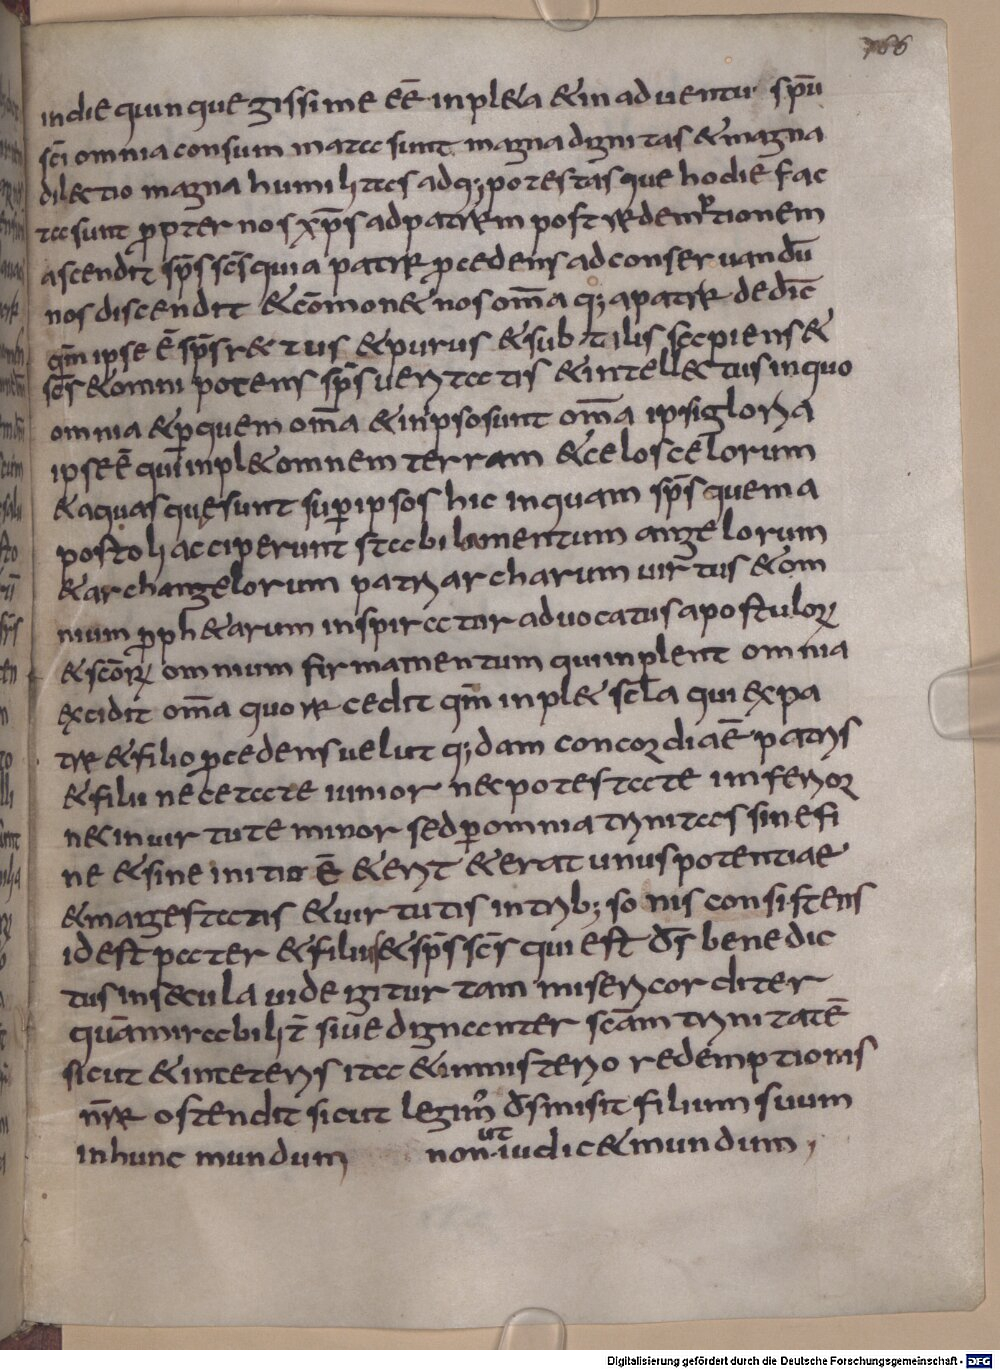 166
in die quinquegissime eē inpl&a &in aduentu sp̄u
sc̄i omnia consummata sunt magna dignitas &magna
dil&tio magna humilitas adq; potestas que hodiē fac
ta sunt ꝓpter nos xp̄s adpatrem post redemptionem
ascendit sp̄s sc̄s quia patre ꝓcedens adconseruandū
nos discendit &cōmon& nos om̄a q; apatre dedic̄
qm̄ ipse ē sp̄s r&tus &purus &subtilis sapiens &
sc̄s &omnipotens sp̄s ueritatis &intell&tus inquo
omnia &ꝑquem om̄a &inipso sunt om̄a ipsi gloria
ipse ē qui inpl& omnem terram &celos celorum
&aquas que sunt suꝑ ipsos hic inquam sp̄s quem a
postoli acciperunt stabilamentum angelorum
&archangelorum patriarcharum uirtus &om
nium ꝓph&arum inspirator aduocatus apostulorꝝ
&sc̄orꝝ omnium firmamentum qui inplent omnia
excidit om̄a quo recedit qm̄ inpl& scl̄a qui expa
tre &filio ꝓcedens uelut q;dam concordiaē patris
&filii nec etate iunior nec potestate inferior
nec in uirtute minor sed ꝑ omnia trinitas sine fi
ne &sine initio ē &erit &erat unus potentiae
&magestatis &uirtutis intrib; sonis consistens
id est pater &filius &sp̄s sc̄s qui est d̄s benedic
tus insecula uide igitur tam misericorditer
quāmirabilit̄ siue dignanter sc̄am trinitatē
sicut &inceteris ita &inmisterio redemptionis
nr̄e ostendit sicut legim̄ d̄s misit filium suum
inhunc mundum non ut iudic& mundum,
Digitalisierung gefördert durch die Deutsche Forschungsgemeinschaft - DFG